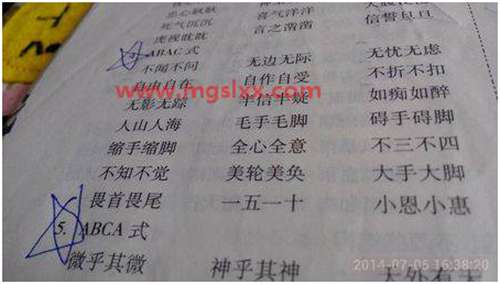 忠心耿耿 喜气洋洋
死气沉沉 言之凿凿 信誓旦旦
虎视眈眈
ABAC 式
不闻不问 无边无际 无忧无虑
自由自在 自作自受 不折不扣
www.mgslxx.com
无影无踪 半信半疑 如痴如醉
人山人海 毛手毛脚 碍手碍脚
缩手缩脚 全心全意 不三不四
不知不觉 美轮美奂 大手大脚
畏首畏尾 一五一十 小恩小惠
5. ABCA 式
微乎其微 神乎其神 天外有天
2014-07-05 16:38:20